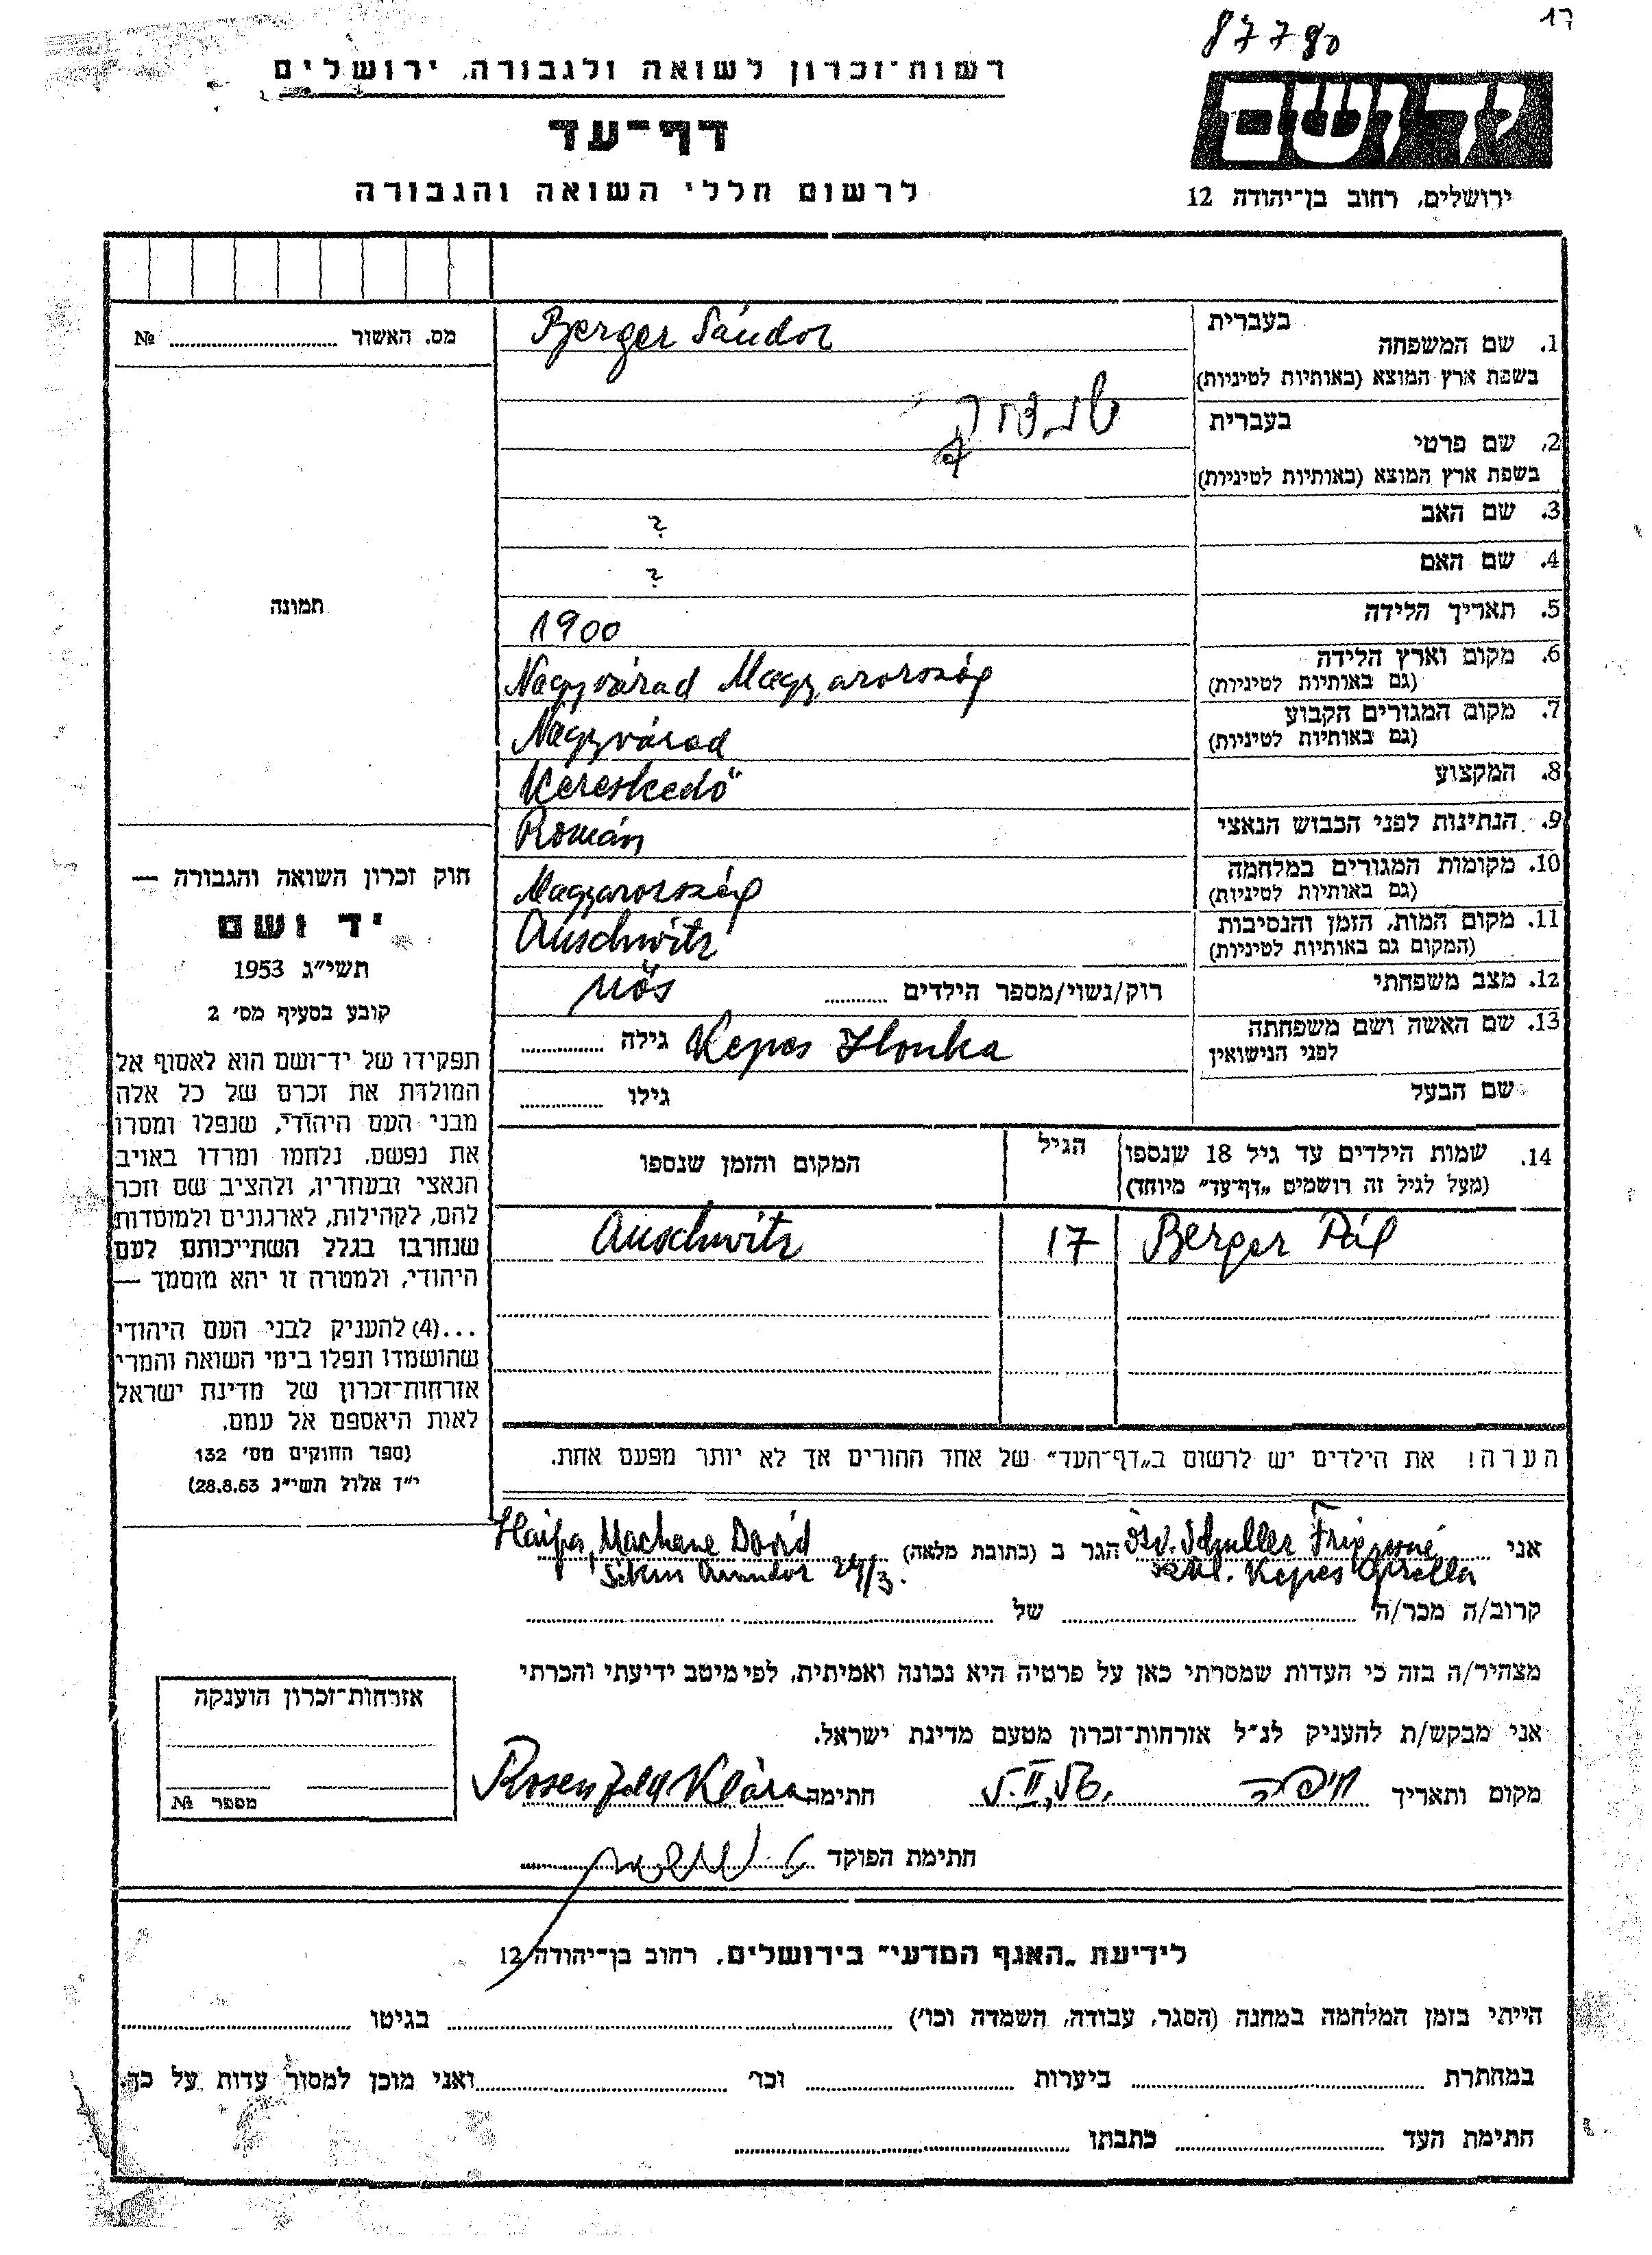 87780
17
רשות־זכרון לשואה ולגבורה, ירושלים
דף־עד
לרשום חללי השואה והגבורה
יד ושם
ירושלים, רחוב בן־יהודה 12
מס. האשור № 
1. שם המשפחה
בעברית
Berger Sándor
בשפת ארץ המוצא (באותיות לטיניות)
2. שם פרטי
בעברית
שנדור
בשפת ארץ המוצא (באותיות לטיניות)
3. שם האב ?
4. שם האם ?
5. תאריך הלידה 1900
6. מקום וארץ הלידה Nagyvárad Magyarország
(גם באותיות לטיניות)
7. מקום המגורים הקבוע Nagyvárad
(גם באותיות לטיניות)
8. המקצוע Kereskedő
9. הנתינות לפני הכבוש הנאצי Román
10. מקומות המגורים במלחמה Magyarország
(גם באותיות לטיניות)
11. מקום המות, הזמן והנסיבות Auschwitz
(המקום גם באותיות לטיניות)
12. מצב משפחתי רוק/נשוי/מספר הילדים nős
13. שם האשה ושם משפחתה Kepes Ilonka גילה
לפני הנישואין
שם הבעל גילו
תמונה
חוק זכרון השואה והגבורה —
יד ושם
תשי״ג 1953
קובע בסעיף מס׳ 2
תפקידו של יד־ושם הוא לאסוף אל
המולדת את זכרם של כל אלה
מבני העם היהודי, שנפלו ומסרו
את נפשם, נלחמו ומרדו באויב
הנאצי ובעוזריו, ולהציב שם וזכר
להם, לקהילות, לארגונים ולמוסדות
שנחרבו בגלל השתייכותם לעם
היהודי, ולמטרה זו יהא מוסמך —
...(4) להעניק לבני העם היהודי
שהושמדו ונפלו בימי השואה והמרי
אזרחות־זכרון של מדינת ישראל
לאות היאספם אל עמם.
(ספר החוקים מס׳ 132
י״ז אלול תשי״ג 28.8.53)
14. שמות הילדים עד גיל 18 שנספו הגיל המקום והזמן שנספו
(מעל לגיל זה רושמים „דף־עד״ מיוחד)
Berger Pál 17 Auschwitz
הערה! את הילדים יש לרשום ב„דף־העד״ של אחד ההורים אך לא יותר מפעם אחת.
אני Özv. Schuller Frigyesné הגר ב (כתובת מלאה) Haifa, Machane David
szül. Kepes Gizella
24/3.
קרוב/ה מכר/ה של
מצהיר/ה בזה כי העדות שמסרתי כאן על פרטיה היא נכונה ואמיתית, לפי מיטב ידיעתי והכרתי
אני מבקש/ת להעניק לנ״ל אזרחות־זכרון מטעם מדינת ישראל.
מקום ותאריך חיפה חתימה Rosenfeld Klára
חתימת הפוקד
אזרחות־זכרון הוענקה
מספר №
לידיעת „האגף המדעי״ בירושלים, רחוב בן־יהודה 12
הייתי בזמן המלחמה במחנה (הסגר, עבודה, השמדה וכו׳) בגיטו
במחתרת ביערות וכו׳ ואני מוכן למסור עדות על כך.
חתימת העד כתבתו